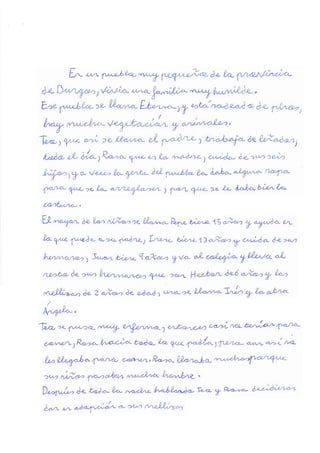 En un pueblo muy pequeño de la provincia
de Burgos, vivia una familia muy humilde.
Ese pueblo se llama Eterna, y está rodeado de pinos,
hay mucha vegetación y animales.
Teo, que asi se llama el padre, trabaja de leñador,
todo el día, Rosa que es la madre, cuida de sus seis
hijos, y a veces la gente del pueblo la daba alguna ropa
para que se la arreglase, por que se le daba bien la
costura.
El mayor de los niños se llama Pepe tiene 15 años y ayuda en
lo que puede a su padre, Irene tiene 13 años y cuida de sus
hermanos, Juan tiene 9 años y va al colegio y lleva al
resto de sus hermanos que son Hector de 6 años y las
mellizas de 2 años de edad, una se llama Inés y la otra
Ángela.
Teo se puso muy enfermo, entonces casi no tenían para
comer, Rosa hacia todo lo que podía, pero aun asi no
les llegaba para comer. Rosa lloraba mucho porque
sus niños pasaban mucha hambre.
Después de toda la noche hablando Teo y Rosa decidieron
dar en adopción a sus mellizas